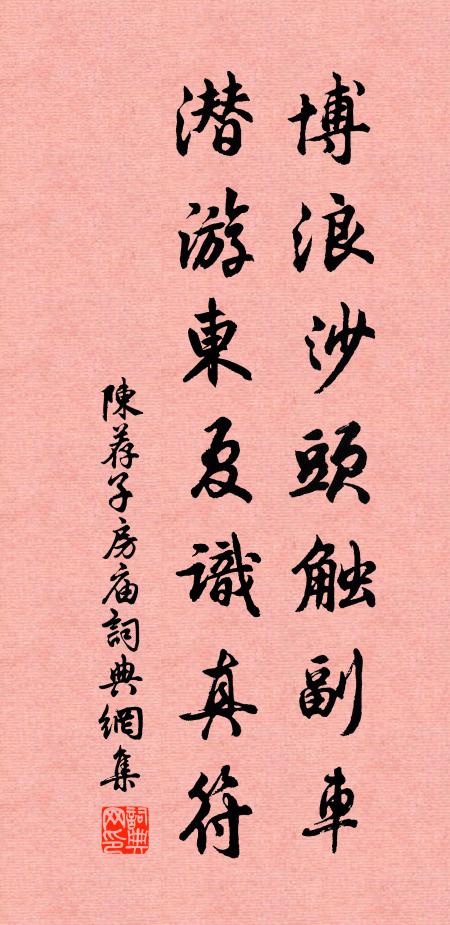 博浪沙頭触副車
潜游東夏識真符
陳荐子房庙詞典網集
詞典网印